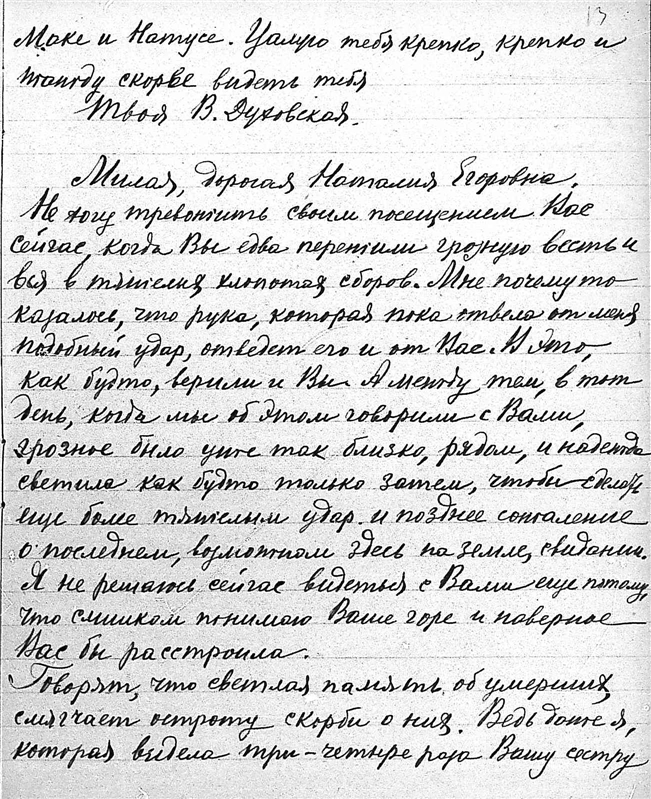 13
Маке и Натусе. Целую тебя крепко, крепко и
жажду скорее видеть тебя
Твоя В. Духовская.
Милая, дорогая Наталия Егоровна.
Не могу тревожить своим посещением Вас
сейчас, когда Вы едва пережили грозную весть и
вся в тяжелых хлопотах сборов. Мне почему то
казалось, что рука, которая пока отвела от меня
подобный удар, отведет его и от Вас. И этo,
как будто, верили и Вы. А между тем, в тот
день, когда мы об этом говорили с Вами,
грозное было уже так близко, рядом, и надежда
светила как будто только затем, чтобы сделать
еще более тяжелым удар и позднее сожаление
о последнем, возможном здесь на земле, свидании.
Я не решаюсь сейчас видеться с Вами еще потому,
что слишком понимаю Ваше горе и наверное
Вас бы расстроила.
Говорят, что светлая память об умерших,
смягчает остроту скорби о них. Ведь даже я,
которая видела три-четыре раза Вашу сестру